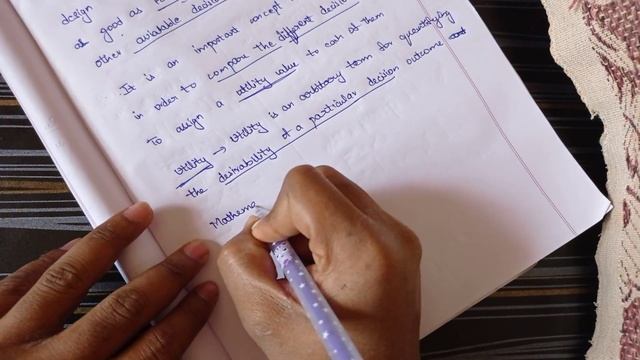 design
as good as
other avialable decision
It is an important concept
in order to compare the different decision
To assign a utility value to each of them
Utility → Utility is an arbitrary term for quantifying
the desirability of a particular decision outcome and
Mathema